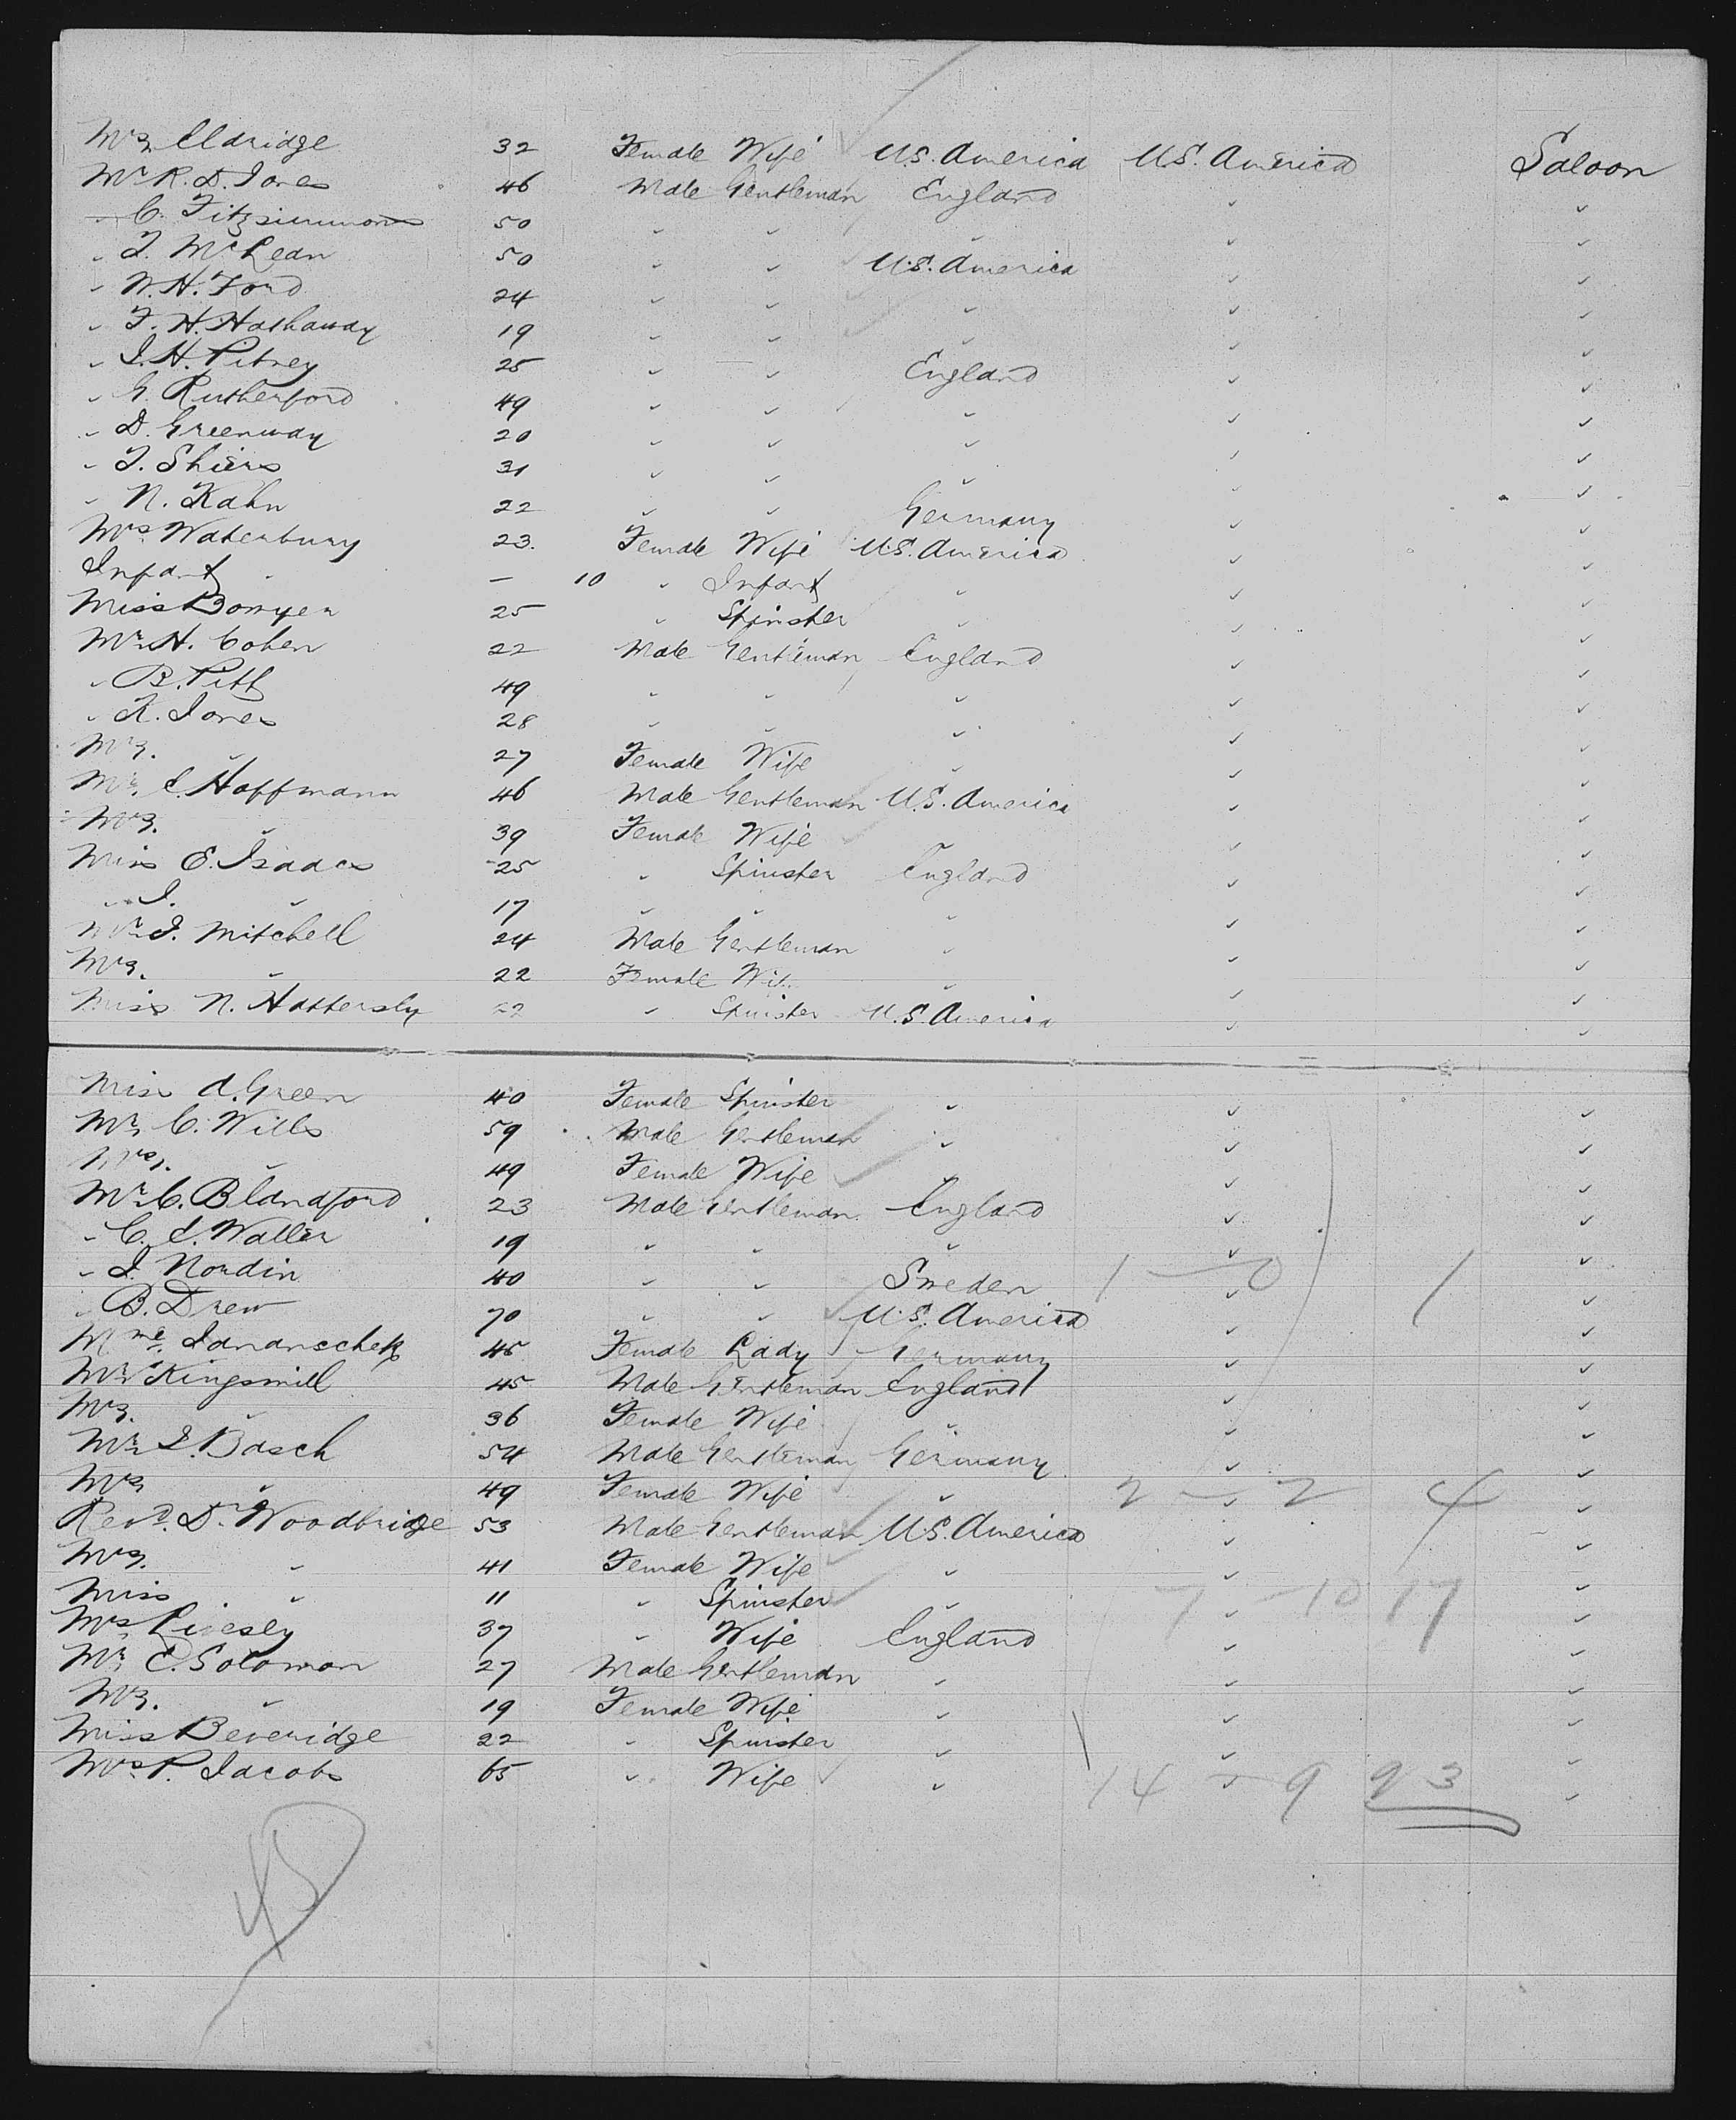 Mrs Eldridge 32 Female Wife U.S. America U.S. America Saloon
Mr R. D. Jones 46 Male Gentleman England " "
" C. Fitzsimmons 50 " " " " "
" T. McLean 50 " " U.S. America " "
" W. H. Ford 24 " " " " "
" F. H. Hathaway 19 " " " " "
" J. H. Pitney 25 " " England " "
" G. Rutherford 49 " " " " "
" D. Greenway 20 " " " " "
" T. Shiers 31 " " " " "
" N. Kahn 22 " " Germany " "
Mrs Waterbury 23 Female Wife U.S. America " "
Infant — 10 " Infant " " "
Miss Bowyer 25 " Spinster " " "
Mr H. Cohen 22 Male Gentleman England " "
" B. Pitt 49 " " " " "
" K. Jones 28 " " " " "
Mrs. " 27 Female Wife " " "
Mr. E. Hoffmann 46 Male Gentleman U.S. America " "
Mrs. " 39 Female Wife " " "
Miss E. Isaacs 25 " Spinster England " "
" J. " 17 " " " " "
Mr J. Mitchell 24 Male Gentleman " " "
Mrs. " 22 Female Wife " " "
Miss N. Hattersly 22 " Spinster U.S. America " "
Miss A. Green 40 Female Spinster " " "
Mr C. Wills 59 Male Gentleman " " "
Mrs. " 49 Female Wife " " "
Mr C. Blandford 23 Male Gentleman England " "
" C. E. Waller 19 " " " " "
" J. Nordin 40 " " Sweden 1 — 0 " 1 "
" B. Drew 70 " " U.S. America " "
Mme. Janauschek 45 Female Lady Germany " "
Mr Kingsmill 45 Male Gentleman England " "
Mrs. " 36 Female Wife " " "
Mr S. Basch 54 Male Gentleman Germany " "
Mrs " 49 Female Wife " 2 — 2 " 4 "
Revd. Dr Woodbridge 53 Male Gentleman U.S. America " "
Mrs. " 41 Female Wife " " "
Miss " 11 " Spinster " 7 — 10 " 17 "
Mrs Livesey 37 " Wife England " "
Mr E. Solomon 27 Male Gentleman " " "
Mrs. " 19 Female Wife " " "
Miss Beveridge 22 " Spinster " " "
Mrs P. Jacobs 65 " Wife " 14 — 9 " 23 "
45